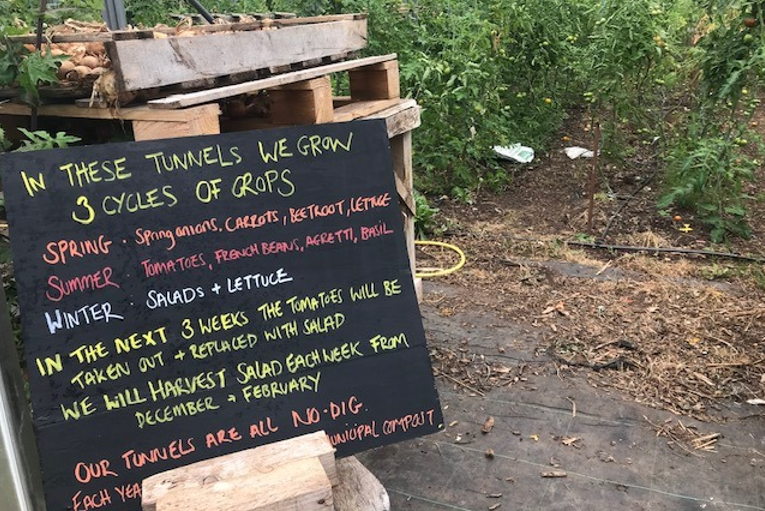 IN THESE TUNNELS WE GROW
3 CYCLES OF CROPS
SPRING . Spring onions, CARROTS, BEETROOT, LETTUCE
SUMMER . TOMATOES, FRENCH BEANS, AGRETTI, BASIL
WINTER . SALADS + LETTUCE
IN THE NEXT 3 WEEKS THE TOMATOES WILL BE
TAKEN OUT + REPLACED WITH SALAD
WE WILL HARVEST SALAD EACH WEEK FROM
DECEMBER → FEBRUARY
OUR TUNNELS ARE ALL NO-DIG.
EACH YEA
UNICIPAL COMPOST